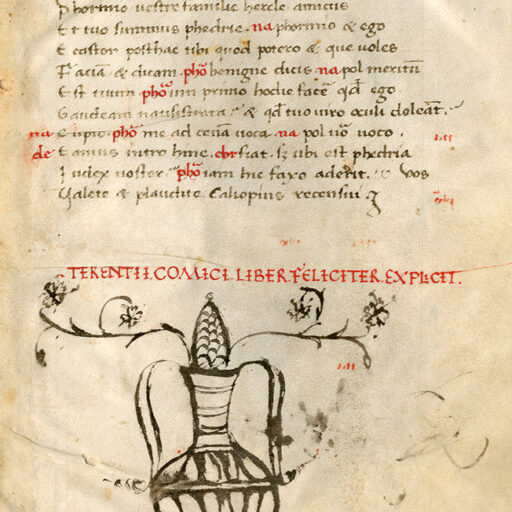 Phormio vestre familie hercle amicus
Et tuo summus phedrie. na phormio & ego
E castor posthac tibi quod potero & que voles
Faciā & dicam. pho benigne dicis na pol meritum
Est tuum pho in primo hodie facē qd ego
Gaudeam nausistrata & qd tuo viro oculi doleāt.
na Cupio pho me ad cena voca. na pol vo voco.
de Eamus intro hinc. chr fiat. sz ubi est phedria
Iudex noster pho iam hic faxo aderit. vos
Valete & plaudite. Caliopius recensui
TERENTII.COMICI.LIBER.FELICITER.EXPLICIT.